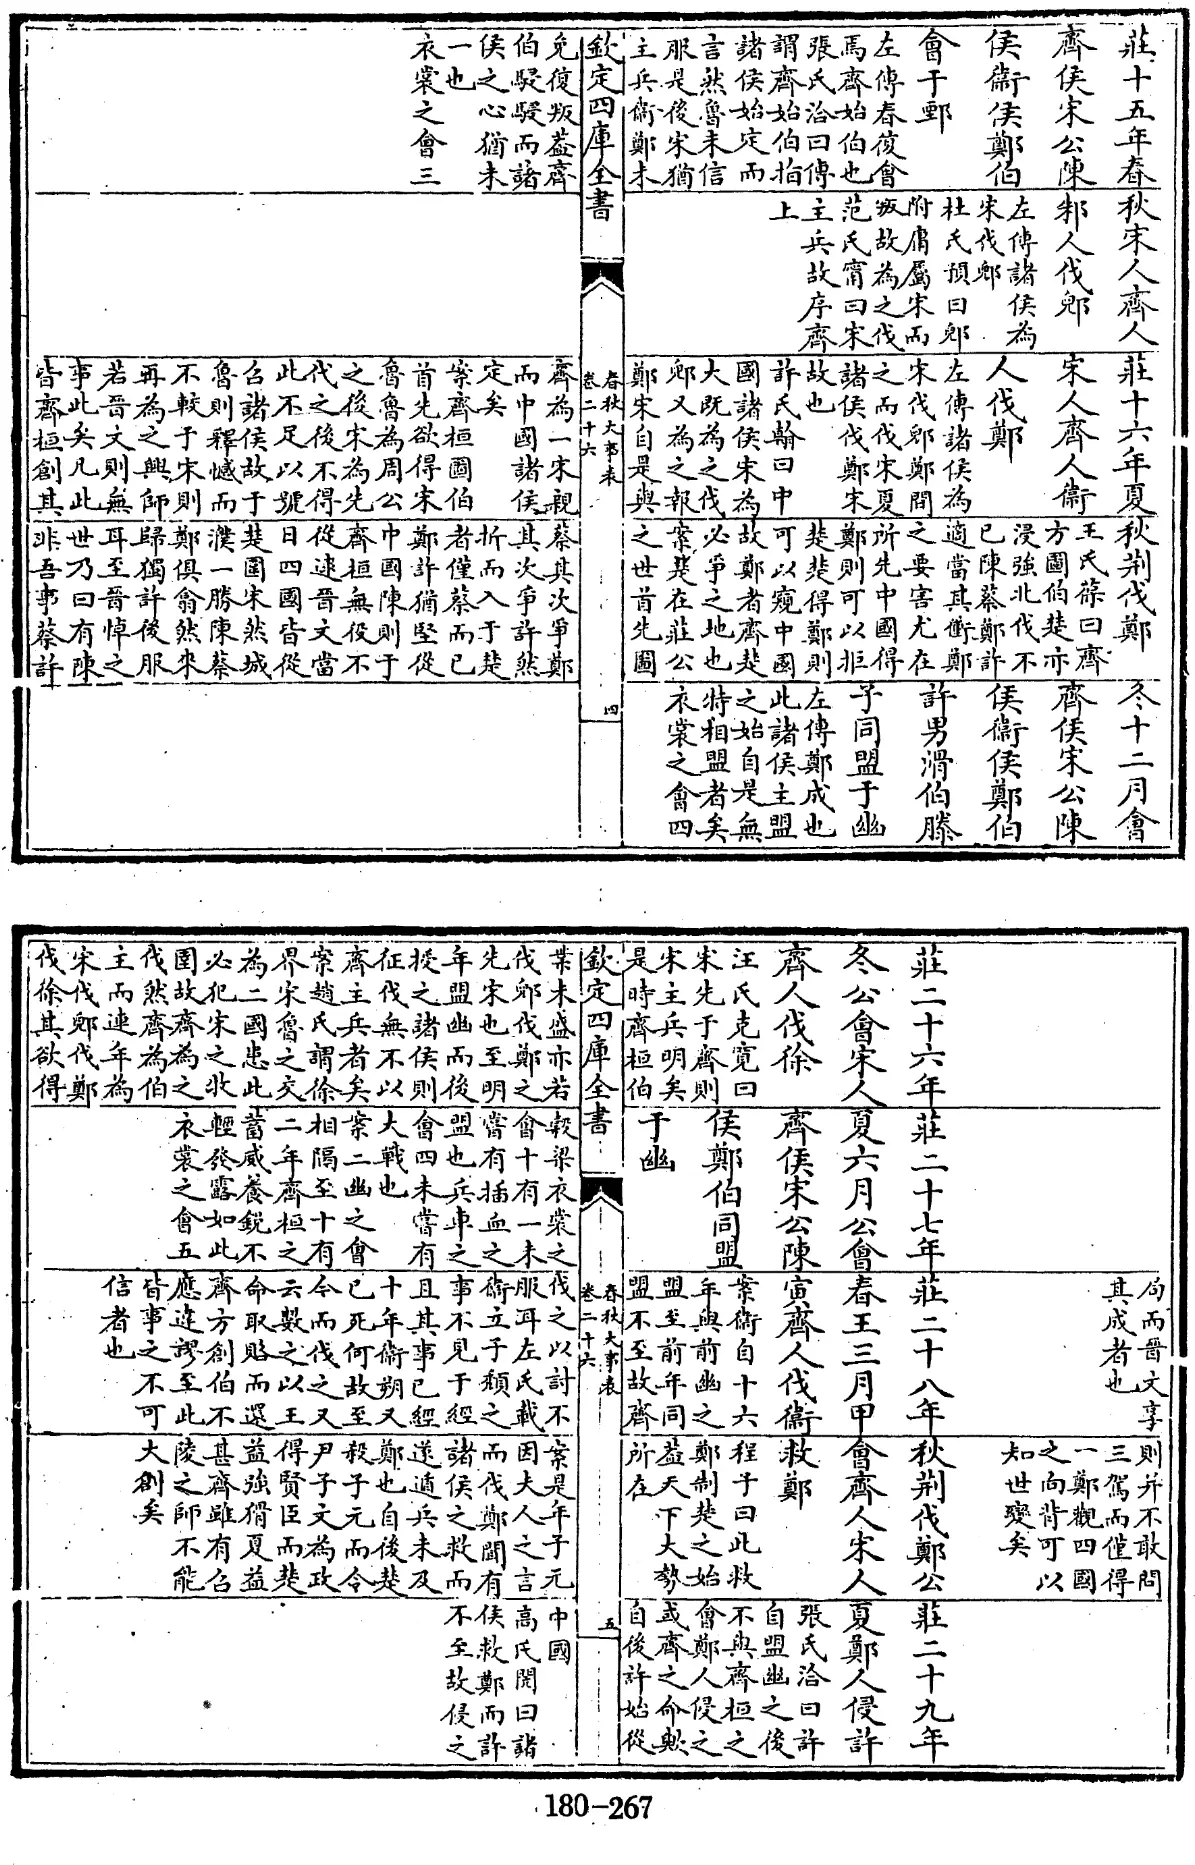 莊十五年春
齊侯宋公陳
侯衛侯鄭伯
會于鄄
左傳春復會
焉齊始伯也
張氏洽曰傳
謂齊始伯指
諸侯始定而
言然魯未信
服是後宋猶
主兵衛鄭未
免復叛葢齊
伯駸駸而諸
侯之心猶未
一也
衣裳之會三
秋宋人齊人
邾人伐郳
左傳諸侯為
宋伐郳
杜氏預曰郳
附庸屬宋而
叛故為之伐
范氏甯曰宋
主兵故序齊
上
莊十六年夏
宋人齊人衛
人伐鄭
左傳諸侯為
宋伐郳鄭間
之而伐宋夏
諸侯伐鄭宋
故也
許氏翰曰中
國諸侯宋為
大既為之伐
郳又為之報
鄭宋自是與
齊為一宋親
而中國諸侯
定矣
案齊桓圖伯
首先欲得宋
魯魯為周公
之後宋為先
代之後不得
此不足以號
召諸侯故于
魯則釋憾而
不較于宋則
再為之興師
若晉文則無
事此矣凡此
皆齊桓創其
秋荊伐鄭
王氏葆曰齊
方圖伯楚亦
浸強北伐不
已陳蔡鄭許
適當其衝鄭
之要害尤在
所先中國得
鄭則可以拒
楚楚得鄭則
可以窺中國
故鄭者齊楚
必爭之地也
案楚在莊公
之世首先圖
蔡其次爭鄭
其次爭許然
折而入于楚
者僅蔡而已
鄭許猶堅從
中國陳則于
齊桓無役不
從逮晉文當
日四國皆從
楚圍宋然城
濮一勝陳蔡
鄭俱翕然來
歸獨許後服
耳至晉悼之
世乃曰有陳
非吾事蔡許
冬十二月會
齊侯宋公陳
侯衛侯鄭伯
許男滑伯滕
子同盟于幽
左傳鄭成也
此諸侯主盟
之始自是無
特相盟者矣
衣裳之會四
欽定四庫全書
春秋大事表
卷二十六
四
莊二十六年
冬公會宋人
齊人伐徐
汪氏克寬曰
宋先于齊則
宋主兵明矣
是時齊桓伯
業未盛亦若
伐郳伐鄭之
先宋也至明
年盟幽而後
授之諸侯則
征伐無不以
齊主兵者矣
案趙氏謂徐
界宋魯之交
為二國患此
必犯宋之牧
圉故齊為之
伐然齊為伯
主而連年為
宋伐郳伐鄭
伐徐其欲得
莊二十七年
夏六月公會
齊侯宋公陳
侯鄭伯同盟
于幽
穀梁衣裳之
會十有一未
嘗有歃血之
盟也兵車之
會四未嘗有
大戰也
案二幽之會
相隔至十有
二年齊桓之
蓄威養銳不
輕發露如此
衣裳之會五
局而晉文享
其成者也
莊二十八年
春王三月甲
寅齊人伐衛
案衛自十六
年與前幽之
盟至前年同
盟不至故齊
伐之以討不
服耳左氏載
衛立子頹之
事不見于經
且其事已經
十年衛朔又
已死何故至
今而伐之又
云數之以王
命取賂而還
齊方創伯不
應違謬至此
皆事之不可
信者也
則并不敢問
三駕而僅得
一鄭觀四國
之向背可以
知世變矣
秋荊伐鄭公
會齊人宋人
救鄭
程子曰此救
鄭制楚之始
葢天下大勢
所在
案是年子元
因夫人之言
而伐鄭聞有
諸侯之救而
遂遁兵未及
鄭也自後楚
殺子元而令
尹子文為政
得賢臣而楚
益強猾夏益
甚齊雖有召
陵之師不能
大創矣
莊二十九年
夏鄭人侵許
張氏洽曰許
自盟幽之後
不與齊桓之
會鄭人侵之
或齊之命歟
自後許始從
中國
高氏閌曰諸
侯救鄭而許
不至故侵之
欽定四庫全書
春秋大事表
卷二十六
五
180-267